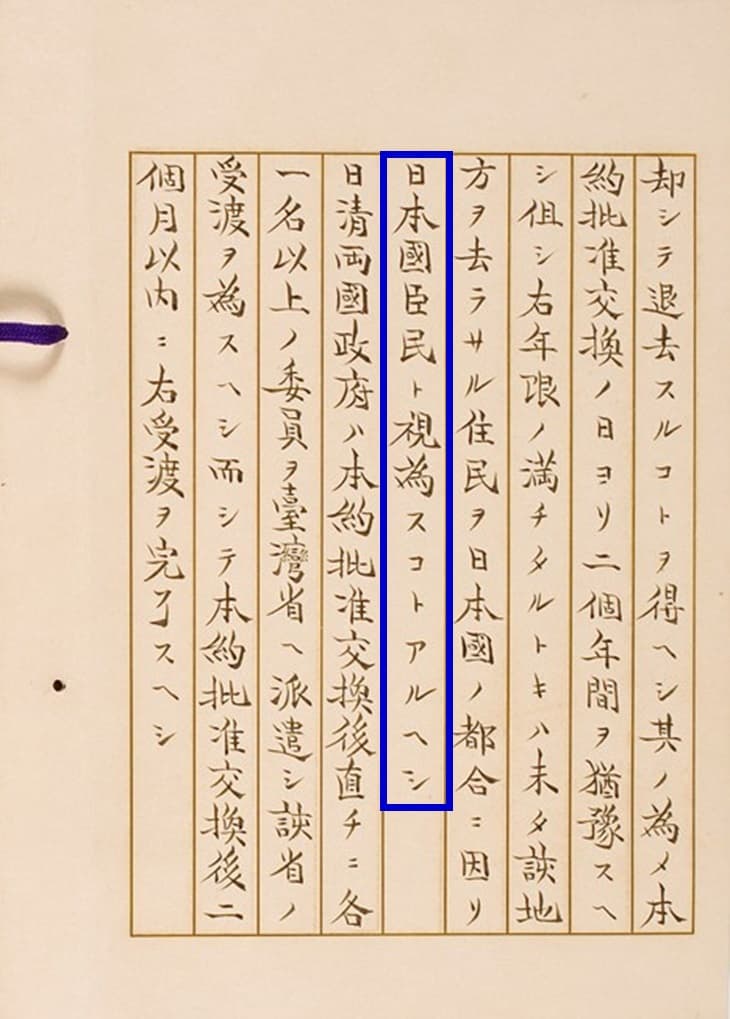 却シテ退去スルコトヲ得ヘシ其ノ為メ本
約批准交換ノ日ヨリ二個年間ヲ猶豫スヘ
シ伹シ右年限ノ満チタルトキハ未タ該地
方ヲ去ラサル住民ヲ日本國ノ都合ニ因リ
日本國臣民ト視為スコトアルヘシ
日清両國政府ハ本約批准交換後直チニ各
一名以上ノ委員ヲ臺灣省ヘ派遣シ該省ノ
受渡ヲ為スヘシ而シテ本約批准交換後二
個月以内ニ右受渡ヲ完了スヘシ